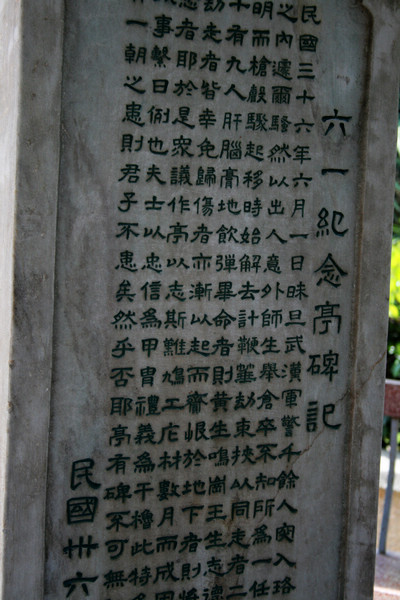 六一紀念亭碑記
民國三十六年六月一日昧旦武漢軍警千餘人突入珞
之內遽爾騷然以出人意外師生舉倉卒不知所為一任
明而槍聲驟起移時始解去計鞭箠劫束挾以同走者二
十有九人肝腦膏地飲彈畢命者則黃生鳴崗王生志德
劫走者皆幸免歸傷者亦漸以起而齎恨於地下者則
者耶於是眾議作亭以志斯難鳩工庀材數月而成因
事繫日例也夫士以忠信為甲冑禮義為干櫓此特
一朝之患則君子不患矣然乎否耶亭有碑不可無
民國卅六